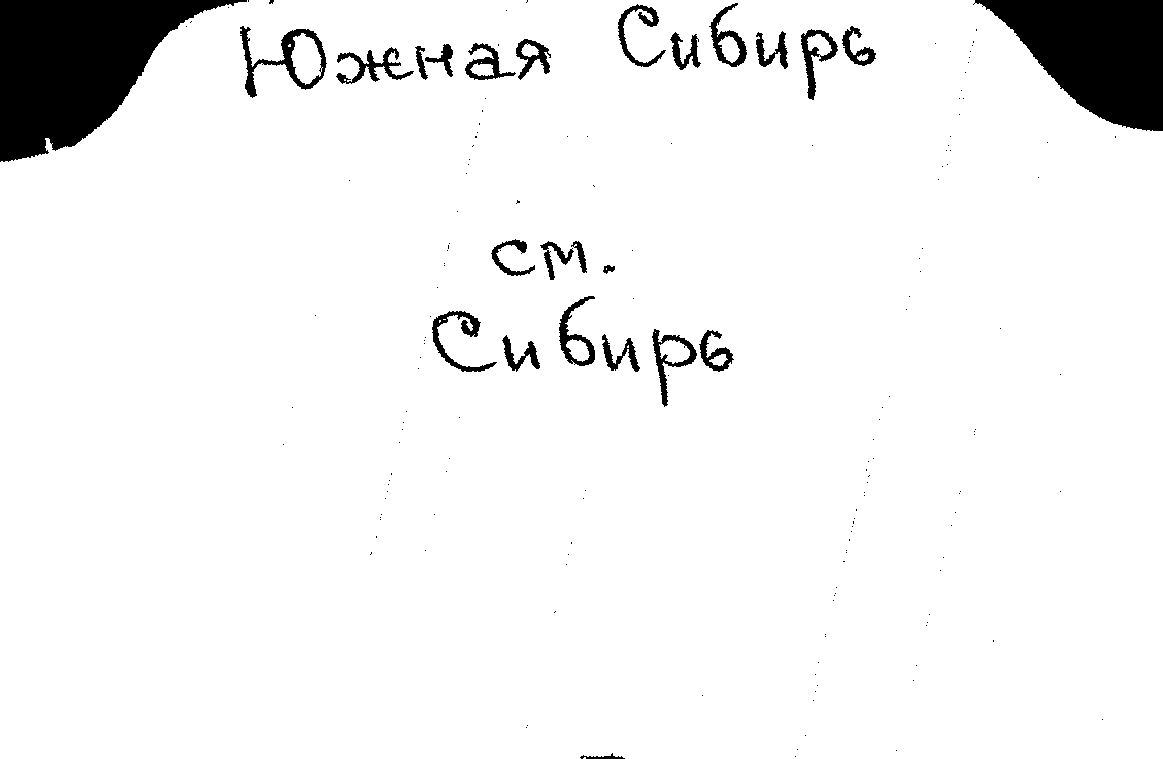 Южная Сибирь
см.
Сибирь